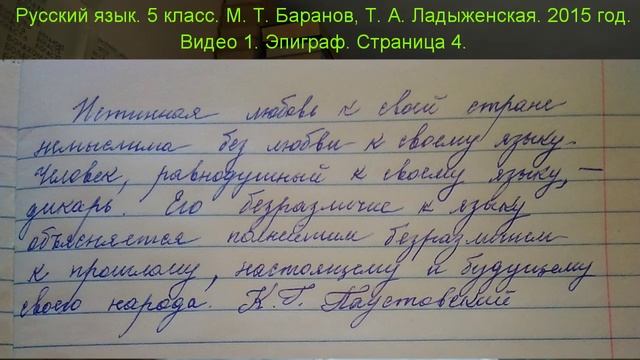 Русский язык. 5 класс. М. Т. Баранов, Т. А. Ладыженская. 2015 год.
Видео 1. Эпиграф. Страница 4.
Истинная любовь к своей стране
немыслима без любви к своему языку.
Человек, равнодушный к своему языку, —
дикарь. Его безразличие к языку
объясняется полнейшим безразличием
к прошлому, настоящему и будущему
своего народа. К. Г. Паустовский